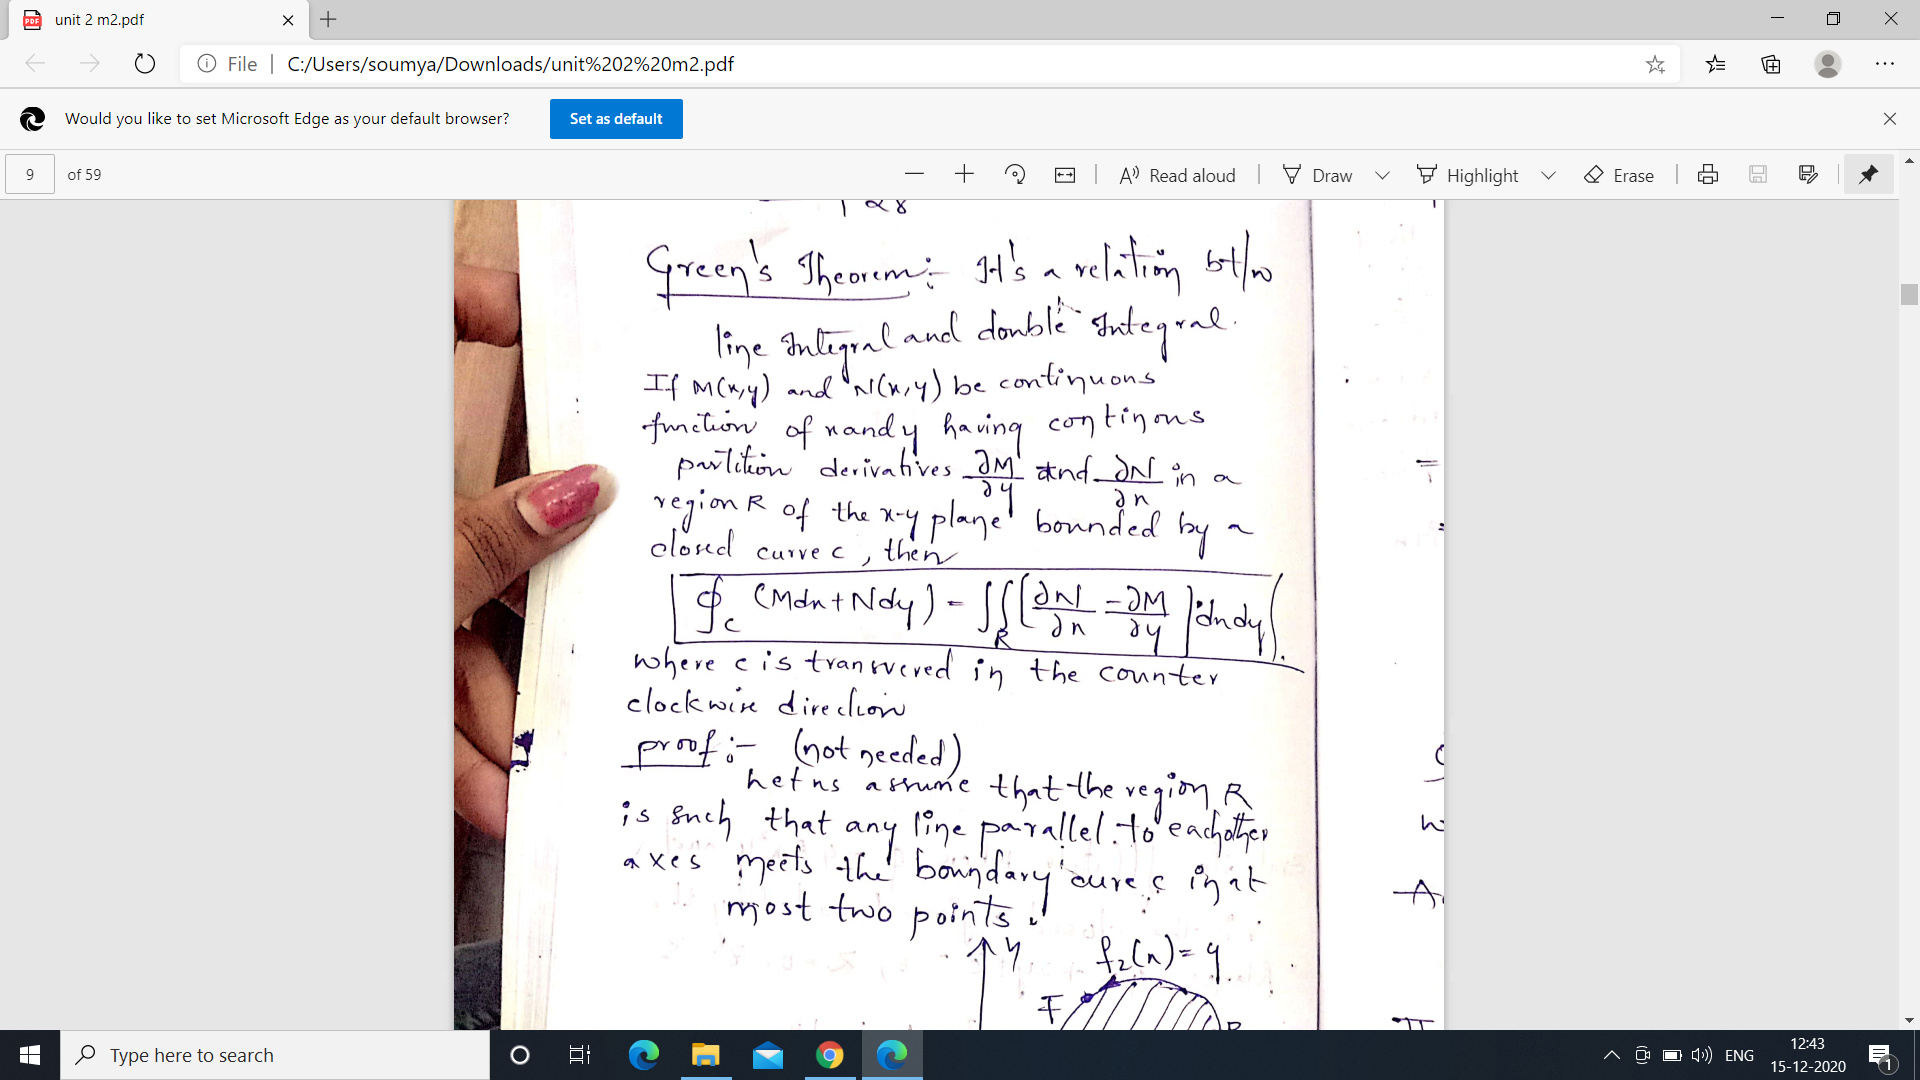 unit 2 m2.pdf
File | C:/Users/soumya/Downloads/unit%202%20m2.pdf
Would you like to set Microsoft Edge as your default browser? Set as default
9 of 59 Read aloud Draw Highlight Erase
Green's Theorem :- It's a relation bt/w
line Integral and double Integral.
If M(x,y) and N(x,y) be continuous
function of x and y having continous
partition derivatives ∂M/∂y and ∂N/∂x in a
region R of the x-y plane bounded by a
closed curve c, then
∮c (Mdx+Ndy) = ∬R [∂N/∂x - ∂M/∂y] dxdy.
where c is transvered in the counter
clockwise direction
proof :- (not needed)
Let us assume that the region R
is such that any line parallel to eachother
axes meets the boundary cure c in at
most two points.
y f₂(x) = y
F
Type here to search
ENG
12:43
15-12-2020
1